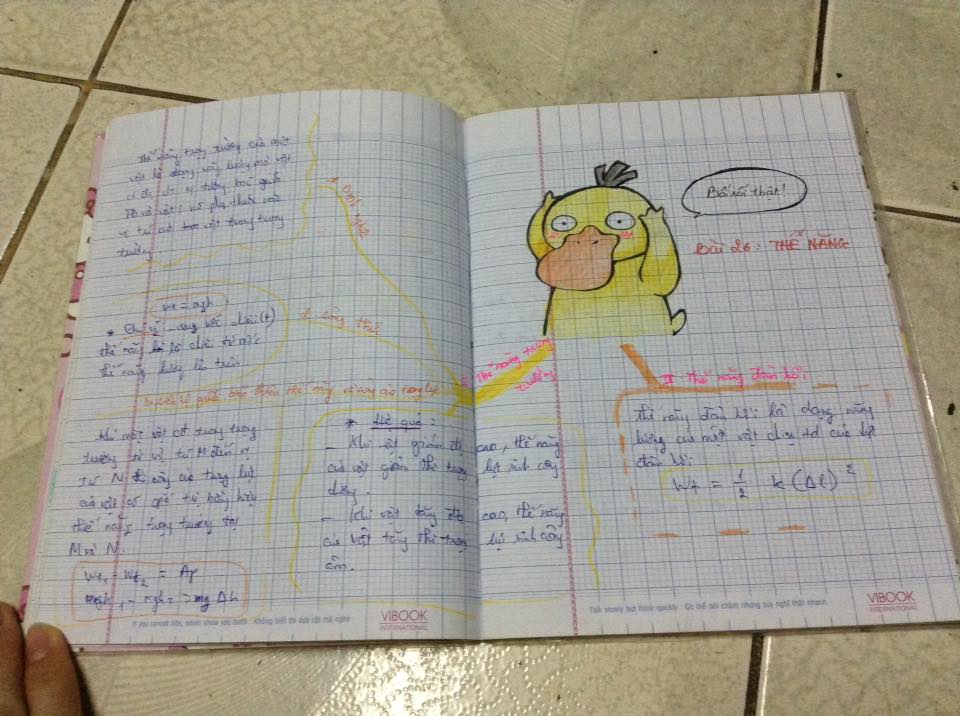 Thế năng trọng trường của một
vật là dạng năng lượng mà vật
có do tương tác giữa
TĐ và vật; nó phụ thuộc vào
vị trí của vật trong trọng
trường
1. Định nghĩa
Wt = mgh
* Chú ý - quy ước chiều (+)
thế năng là chiều từ mốc
thế năng hướng lên trên.
2. Công thức
3. Liên hệ giữa biến thiên thế năng và công của trọng lực
Khi một vật cđ trong trọng
trường từ vị trí M đến vị
trí N thì công của trọng lực
của vật có giá trị bằng hiệu
thế năng trọng trường tại
M và N.
Wt1 - Wt2 = Ap
mgh1 - mgh2 = mg Δh
* Hệ quả:
- Khi vật giảm độ cao, thế năng
của vật giảm thì trọng lực sinh công
dương.
- Khi vật tăng độ cao, thế năng
của vật tăng thì trọng lực sinh công
âm.
If you cannot bite, never show your teeth - Không biết thì dựa cột mà nghe
VIBOOK
INTERNATIONAL
Bối rối thật!
Bài 26: THẾ NĂNG
Thế năng trọng
trường
II Thế năng đàn hồi:
Thế năng đàn hồi: là dạng năng
lượng của một vật chịu td của lực
đàn hồi:
Wt = 1/2 k (Δl)²
Talk slowly but think quickly - Có thể nói chậm nhưng hãy nghĩ thật nhanh.
VIBOOK
INTERNATIONAL